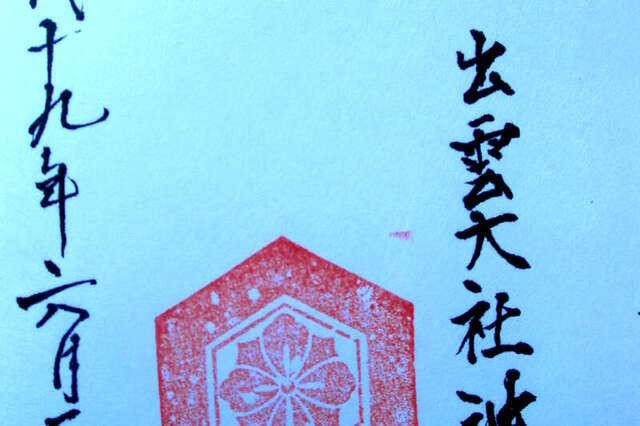 出雲大社
十九年六月